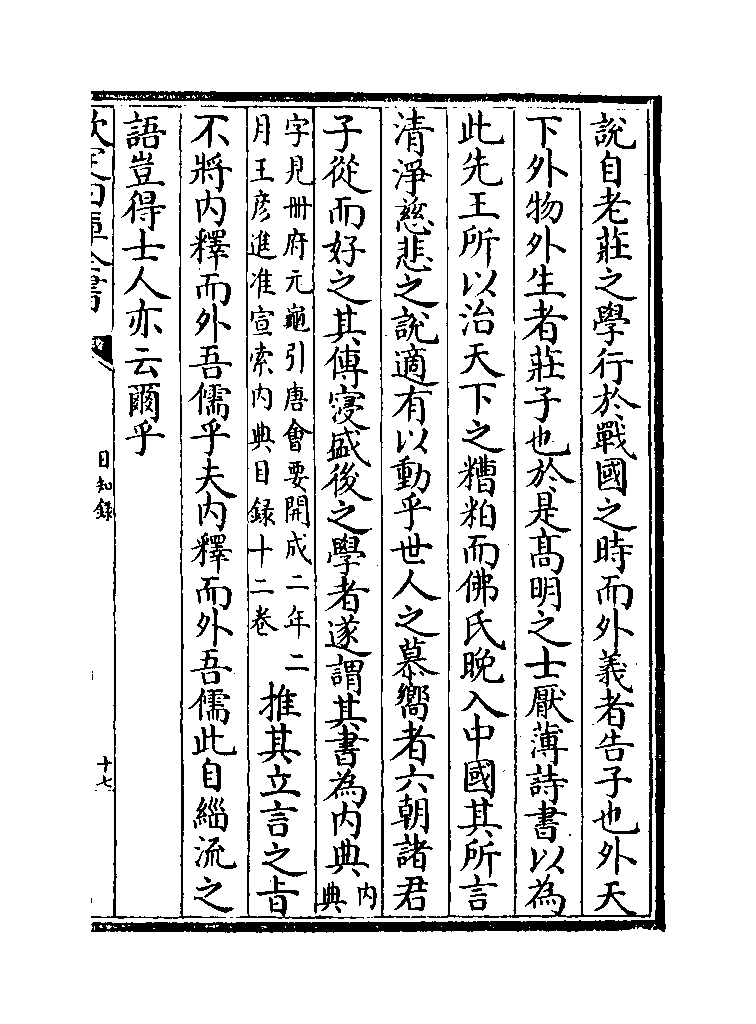 說自老莊之學行於戰國之時而外義者告子也外天
下外物外生者莊子也於是髙明之士厭薄詩書以為
此先王所以治天下之糟粕而佛氏晚入中國其所言
清淨慈悲之說適有以動乎世人之慕嚮者六朝諸君
子從而好之其傳寖盛後之學者遂謂其書為内典内典
字見冊府元龜引唐會要開成二年二
月王彦進准宣索内典目録十二卷
推其立言之㫖
不將内釋而外吾儒乎夫内釋而外吾儒此自緇流之
語豈得士人亦云爾乎
欽定四庫全書
日知録
十七